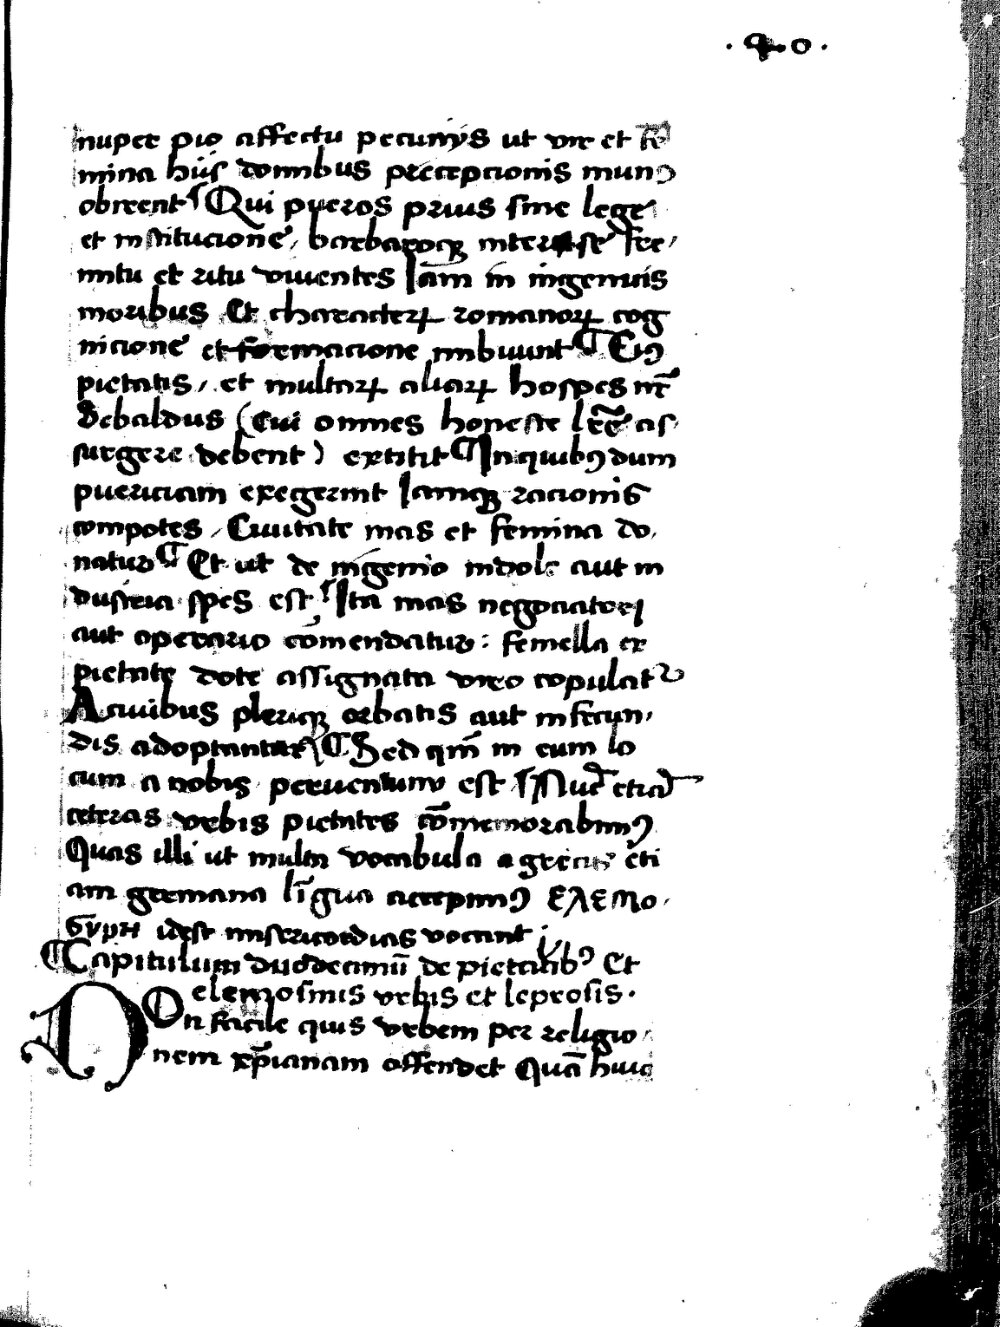 · 40 ·
nuper pio affectu pecunijs ut vir et fe
mina hiis domibus preceptionis mun9
obirent Qui pueros prius sine lege
et institucione, barbaroqꝫ inter se fre,
mitu et ritu viuentes Iam in ingenuis
moribus Et characterꝝ romanorꝝ cog
nicione et formacione imbuunt ¶ Ei9
pietatis, et multarꝝ aliarꝝ hospes nr̄
Sebaldus (cui omnes honeste lr̄e as
surgere debent) extitit ¶ In quib9 dum
puericiam exegerint Iamqꝫ racionis
compotes, Ciuitate mas et femina do,
natur ¶ Et ut de ingenio indole aut in
dustria spes est, Ita mas negociatori
aut operario comendatur: femella ex
pietate dote assignata viro copulatr
A ciuibus pleriqꝫ orbatis aut infecun,
dis adoptantur ¶ Sed qm̄ in eum lo
cum a nobis peruentum est Nuc̄ etiā
ceteras vrbis pietates cōmemorabim9
Quas illi ut multa vocabula a grecis eti
am germana līgua accepim9 ΕΛΕΜο,
συνη idest misericordias vocant
¶ Capitulum duodecimū de pietatib9 Et
elemosinis vrbis et leprosis.
NOn facile quis vrbem per religio,
nem xp̄ianam offendet Quā huic